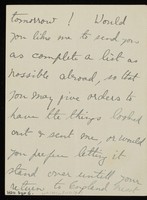 tomorrow! Would
you like me to send you
as complete a list as
possible abroad, so that
you may give orders to
have the things looked
out & sent me, or would
you prefer letting it
stand over untill your
return to England next